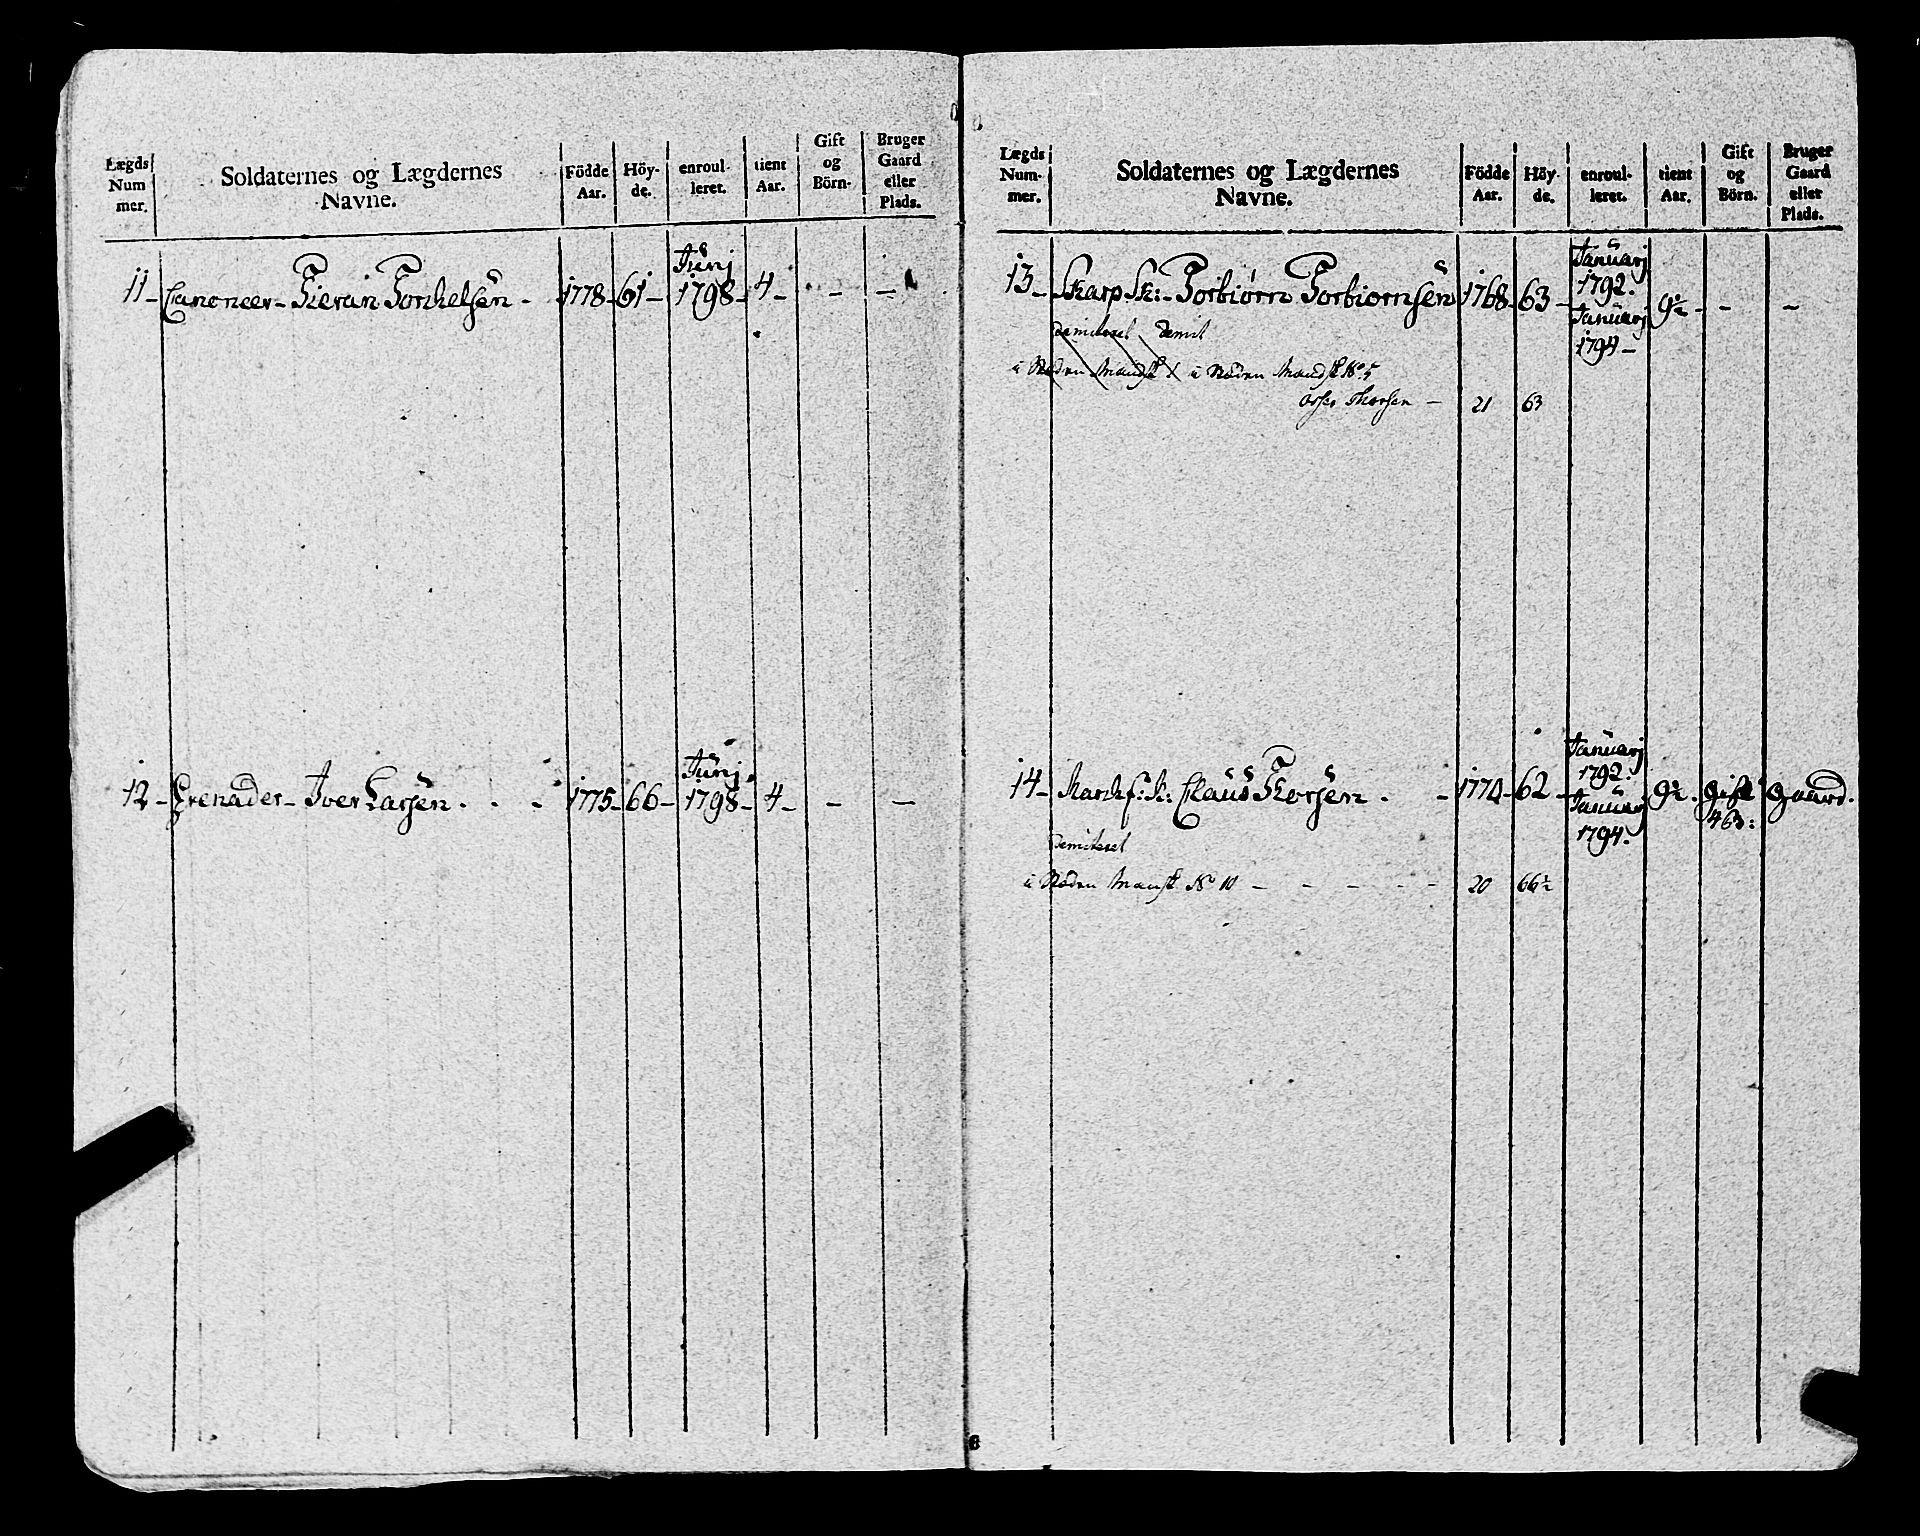 Lægds Num mer.
Soldaternes og Lægdernes Navne.
Födde Aar.
Höy- de.
enroul- leret.
tient Aar.
Gift og Börn.
Bruger Gaard eller Plads.
11 - Canoneer - Tieran Torkelsen - 1778 - 61 - Junj 1798 - 4 - - -
12 - Grenader - Iver Larsen - 1775 - 66 - Junj 1798 - 4 - - -
Lægds Num- mer.
Soldaternes og Lægdernes Navne.
Födde Aar.
Höy- de.
enroul- leret.
tient Aar.
Gift og Börn.
Bruger Gaard eller Plads.
13 - Skarp Sk: - Torbiørn Torbiornsen 1768 - 63 - Januarj 1792. Januarj 1794 - 9½ - - -
demiteret demit
i Steden Mandsk i Steden Mandsk No 5
Thorsen - 21 63
14 - Claus Torsen - 1770 - 62 - Januarj 1792. Januarj 1794. 9½ - gift 4 b: gaard.
demiteret
i Steden Mansk No 10 - - - - - 20 66½